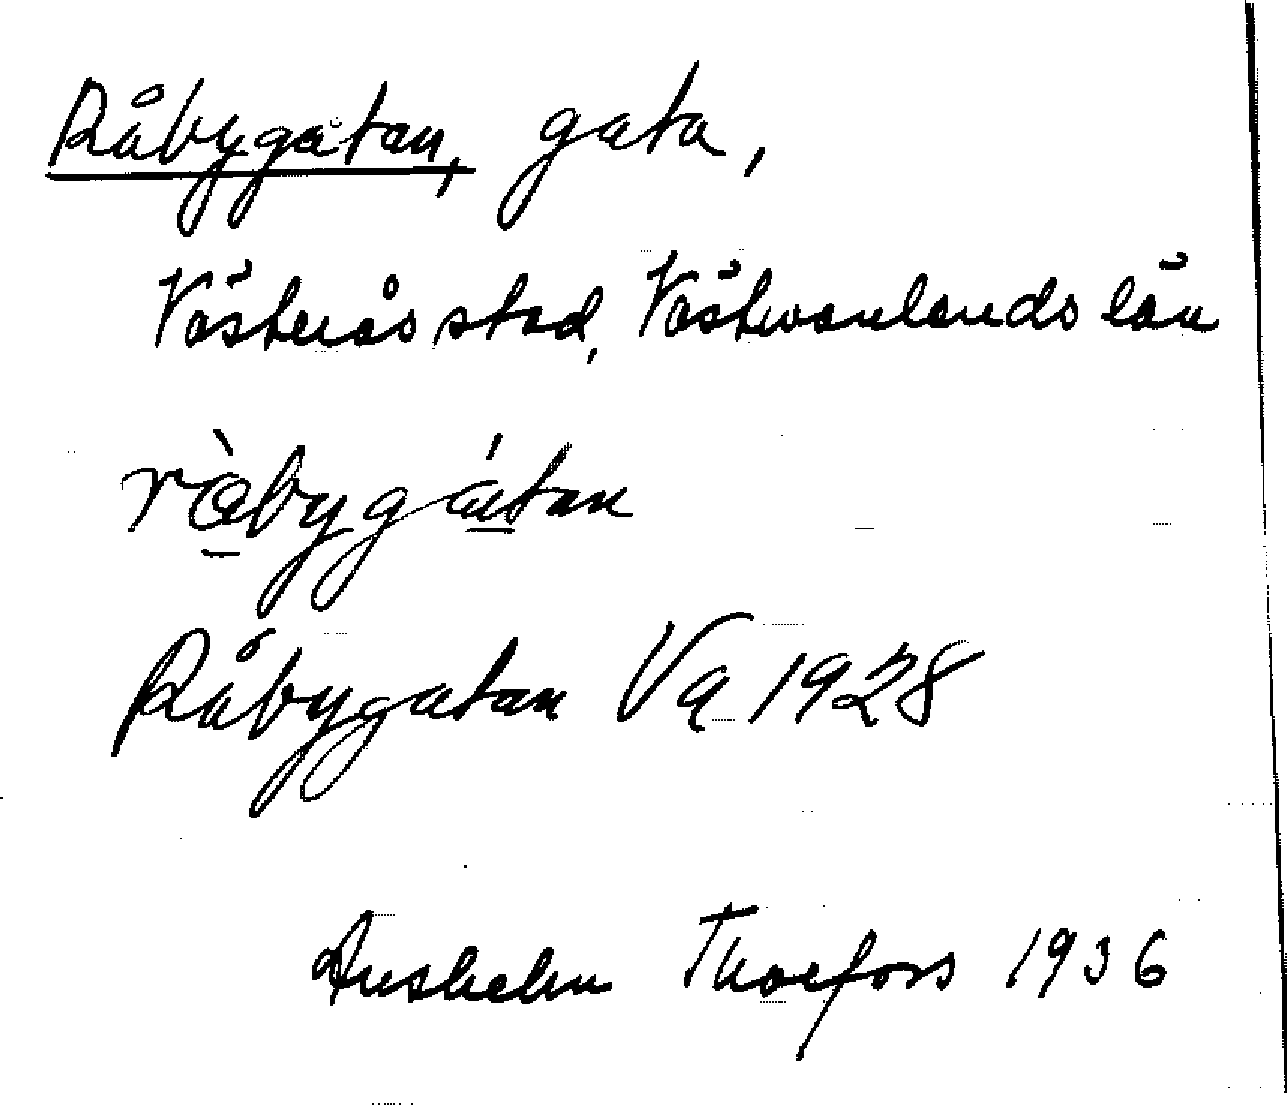 Råbygatan, gata,
Västerås stad, Västmanlands län
ràbygátan
Råbygatan Va 1928
Thorfors 1936